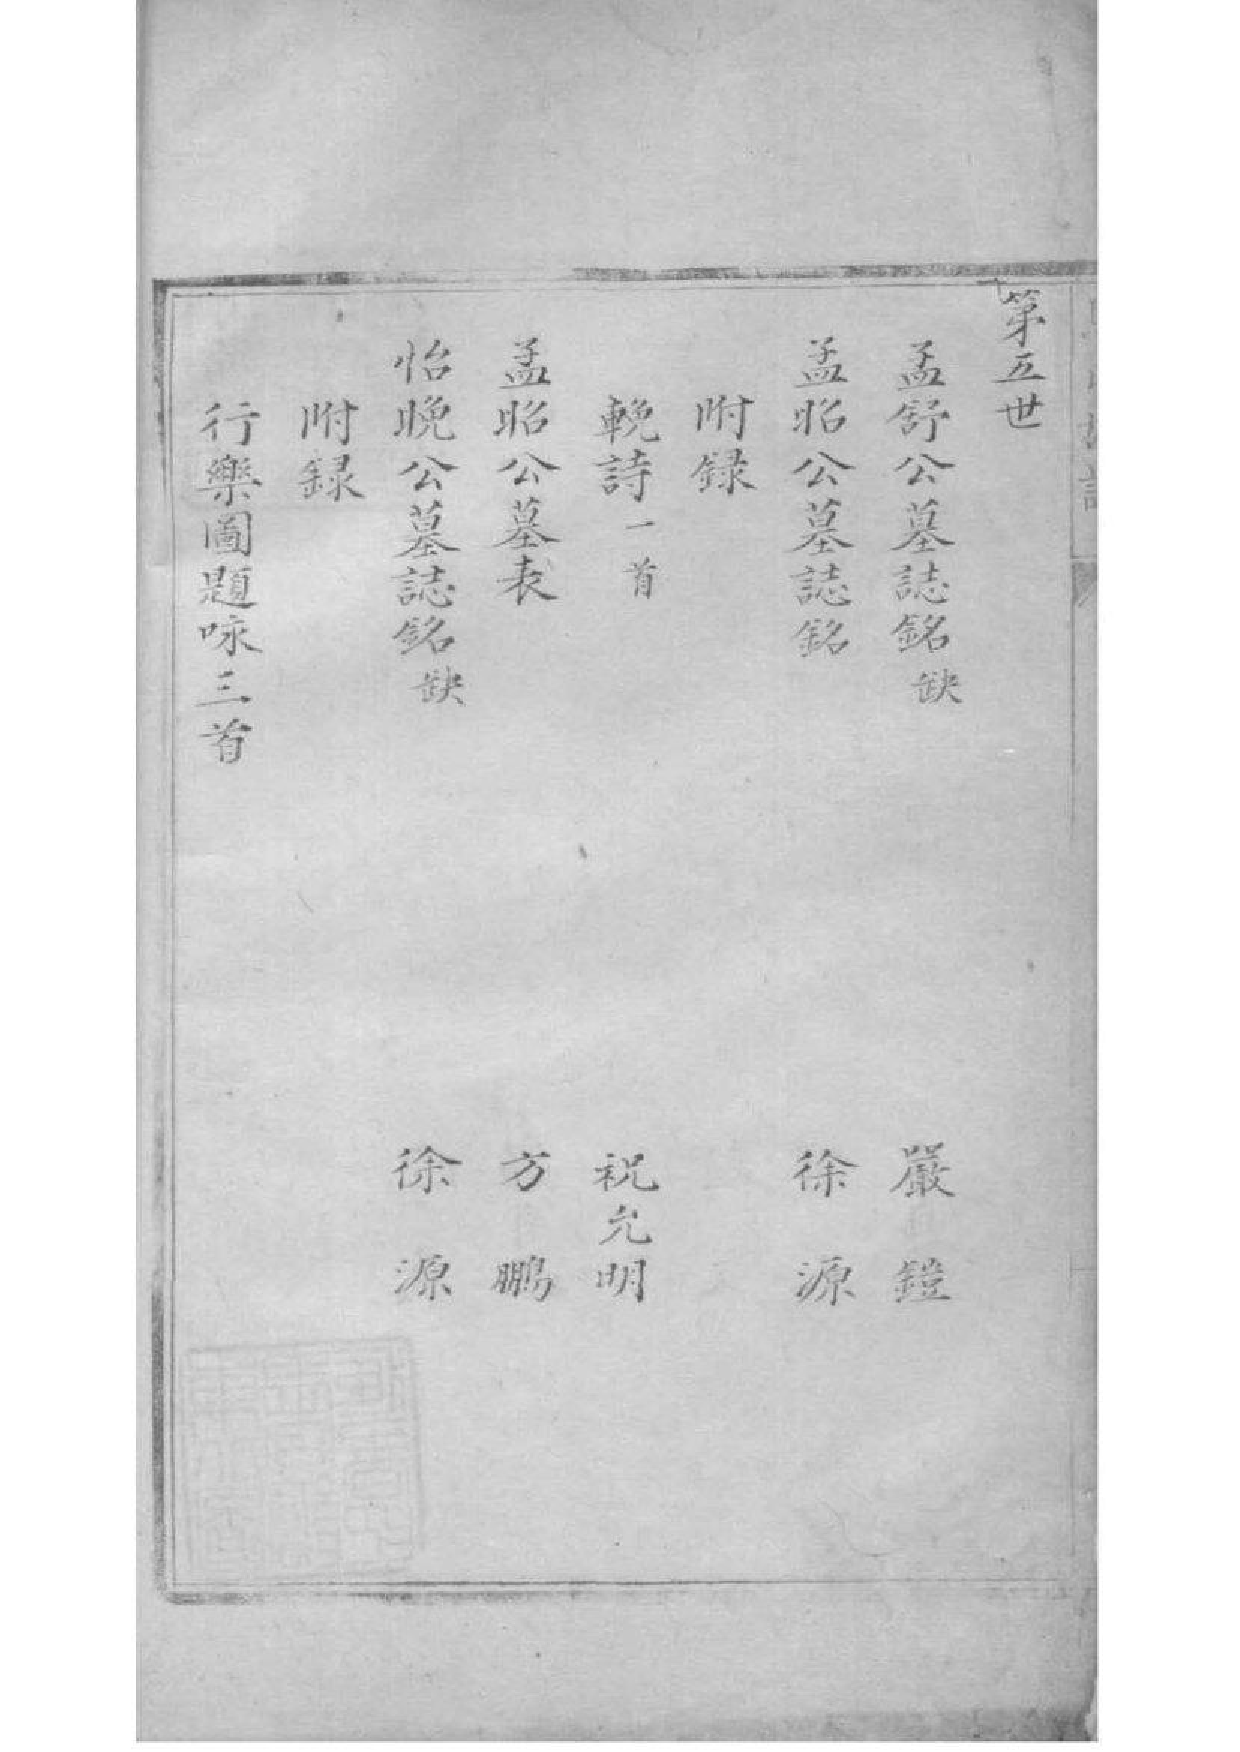 第五世
孟舒公墓誌銘缺 嚴鎧
孟昭公墓誌銘 徐源
附録
輓詩一首 祝允明
孟昭公墓表 方鵬
怡晚公墓誌銘缺 徐源
附録
行樂圖題咏三首